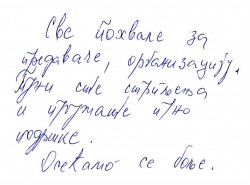 Све похвале за
предаваче, организацију.
Пуни сте стрпљења
и пружате пуно
подршке.
Осећамо се боље.